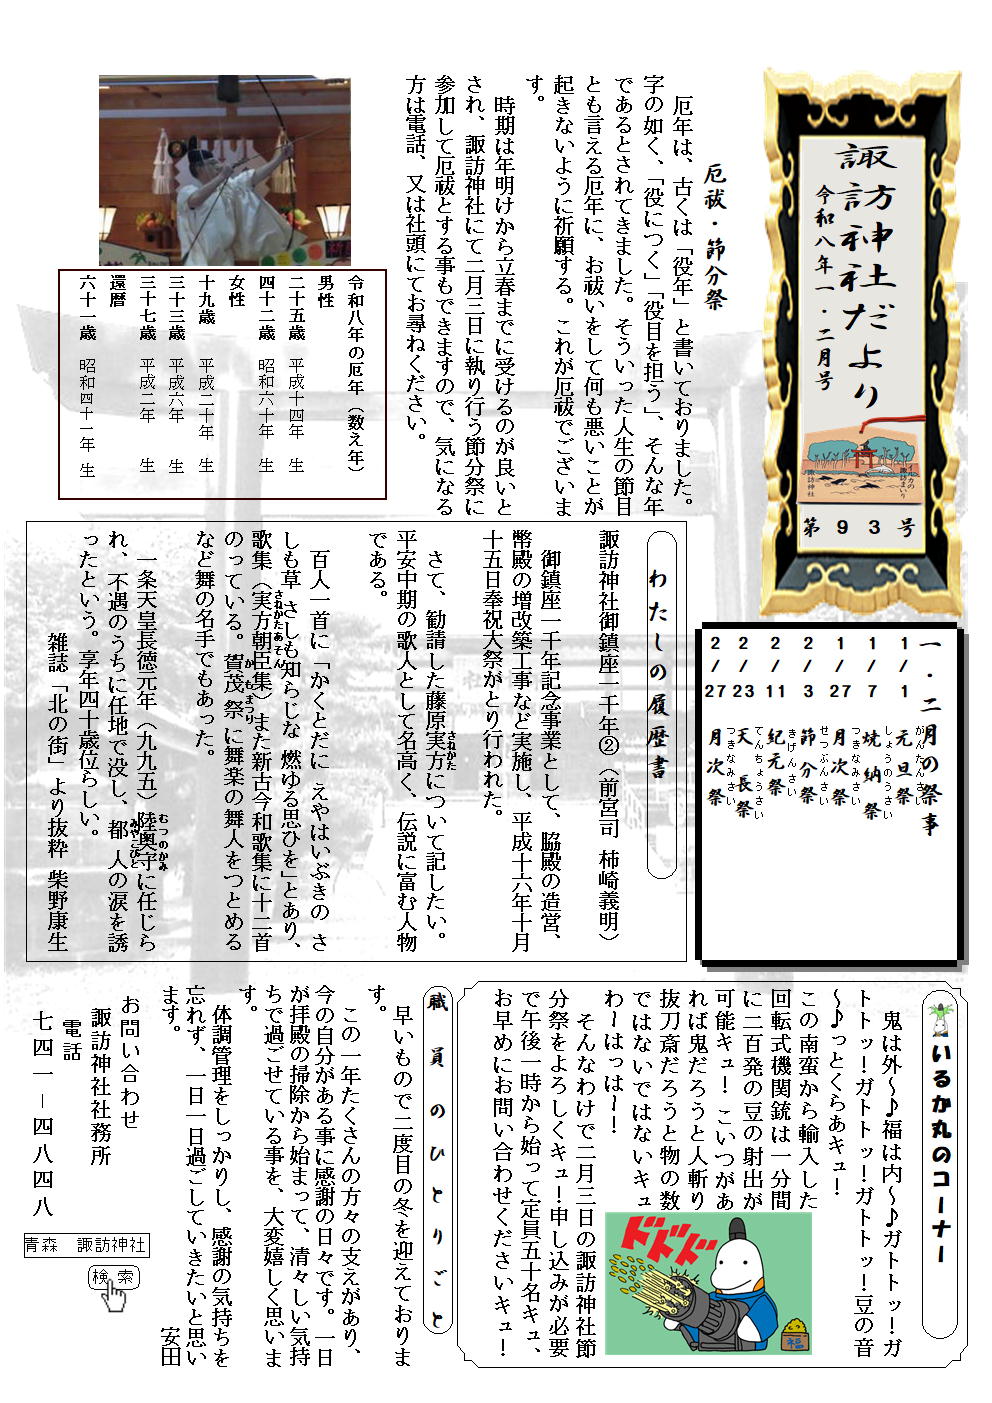 諏訪神社だより
令和八年一・二月号
イルカの
諏訪まいり
諏訪神社
第93号
厄祓・節分祭
厄年は、古くは「役年」と書いておりました。
字の如く、「役につく」「役目を担う」、そんな年
であるとされてきました。そういった人生の節目
とも言える厄年に、お祓いをして何も悪いことが
起きないように祈願する。これが厄祓でございま
す。
時期は年明けから立春までに受けるのが良いと
され、諏訪神社にて二月三日に執り行う節分祭に
参加して厄祓とする事もできますので、気になる
方は電話、又は社頭にてお尋ねください。
令和八年の厄年（数え年）
男性
二十五歳　平成十四年　生
四十二歳　昭和六十年　生
女性
十九歳　平成二十年　生
三十三歳　平成六年　生
三十七歳　平成二年　生
還暦
六十一歳　昭和四十一年　生
一・二月の祭事
1/1　元旦祭
がんたんさい
1/7　焼納祭
しょうのうさい
1/27　月次祭
つきなみさい
2/3　節分祭
せつぶんさい
2/11　紀元祭
きげんさい
2/23　天長祭
てんちょうさい
2/27　月次祭
つきなみさい
わたしの履歴書
諏訪神社御鎮座一千年②（前宮司 柿崎義明）
御鎮座一千年記念事業として、脇殿の造営、
幣殿の増改築工事など実施し、平成十六年十月
十五日奉祝大祭がとり行われた。
さて、勧請した藤原実方について記したい。
さねかた
平安中期の歌人として名高く、伝説に富む人物
である。
百人一首に「かくとだに えやはいぶきの さ
しも草 さしも知らじな 燃ゆる思ひを」とあり、
歌集（実方朝臣集）また新古今和歌集に十二首
さねかたあそん
のっている。賀茂祭に舞楽の舞人をつとめる
かもまつり
など舞の名手でもあった。
一条天皇長徳元年（九九五）陸奥守に任じら
むつのかみ
れ、不遇のうちに任地で没し、都人の涙を誘
みやこびと
ったという。享年四十歳位らしい。
雑誌「北の街」より抜粋 柴野康生
いるか丸のコーナー
鬼は外～♪福は内～♪ガトトッ！ガ
トトッ！ガトトッ！ガトトッ！豆の音
～♪っとくらあキュ！
この南蛮から輸入した
回転式機関銃は一分間
に二百発の豆の射出が
可能キュ！こいつがあ
れば鬼だろうと人斬り
抜刀斎だろうと物の数
ではないではないキュ
わ～はっは～！
そんなわけで二月三日の諏訪神社節
分祭をよろしくキュ！申し込みが必要
で午後一時から始って定員五十名キュ、
お早めにお問い合わせくださいキュ！
ドドドド
福
職員のひとりごと
早いもので二度目の冬を迎えておりま
す。
この一年たくさんの方々の支えがあり、
今の自分がある事に感謝の日々です。一日
が拝殿の掃除から始まって、清々しい気持
ちで過ごせている事を、大変嬉しく思いま
す。
体調管理をしっかりし、感謝の気持ちを
忘れず、一日一日過ごしていきたいと思い
ます。　安田
お問い合わせ
諏訪神社社務所
電話
七四一－四八四八
青森　諏訪神社
検索